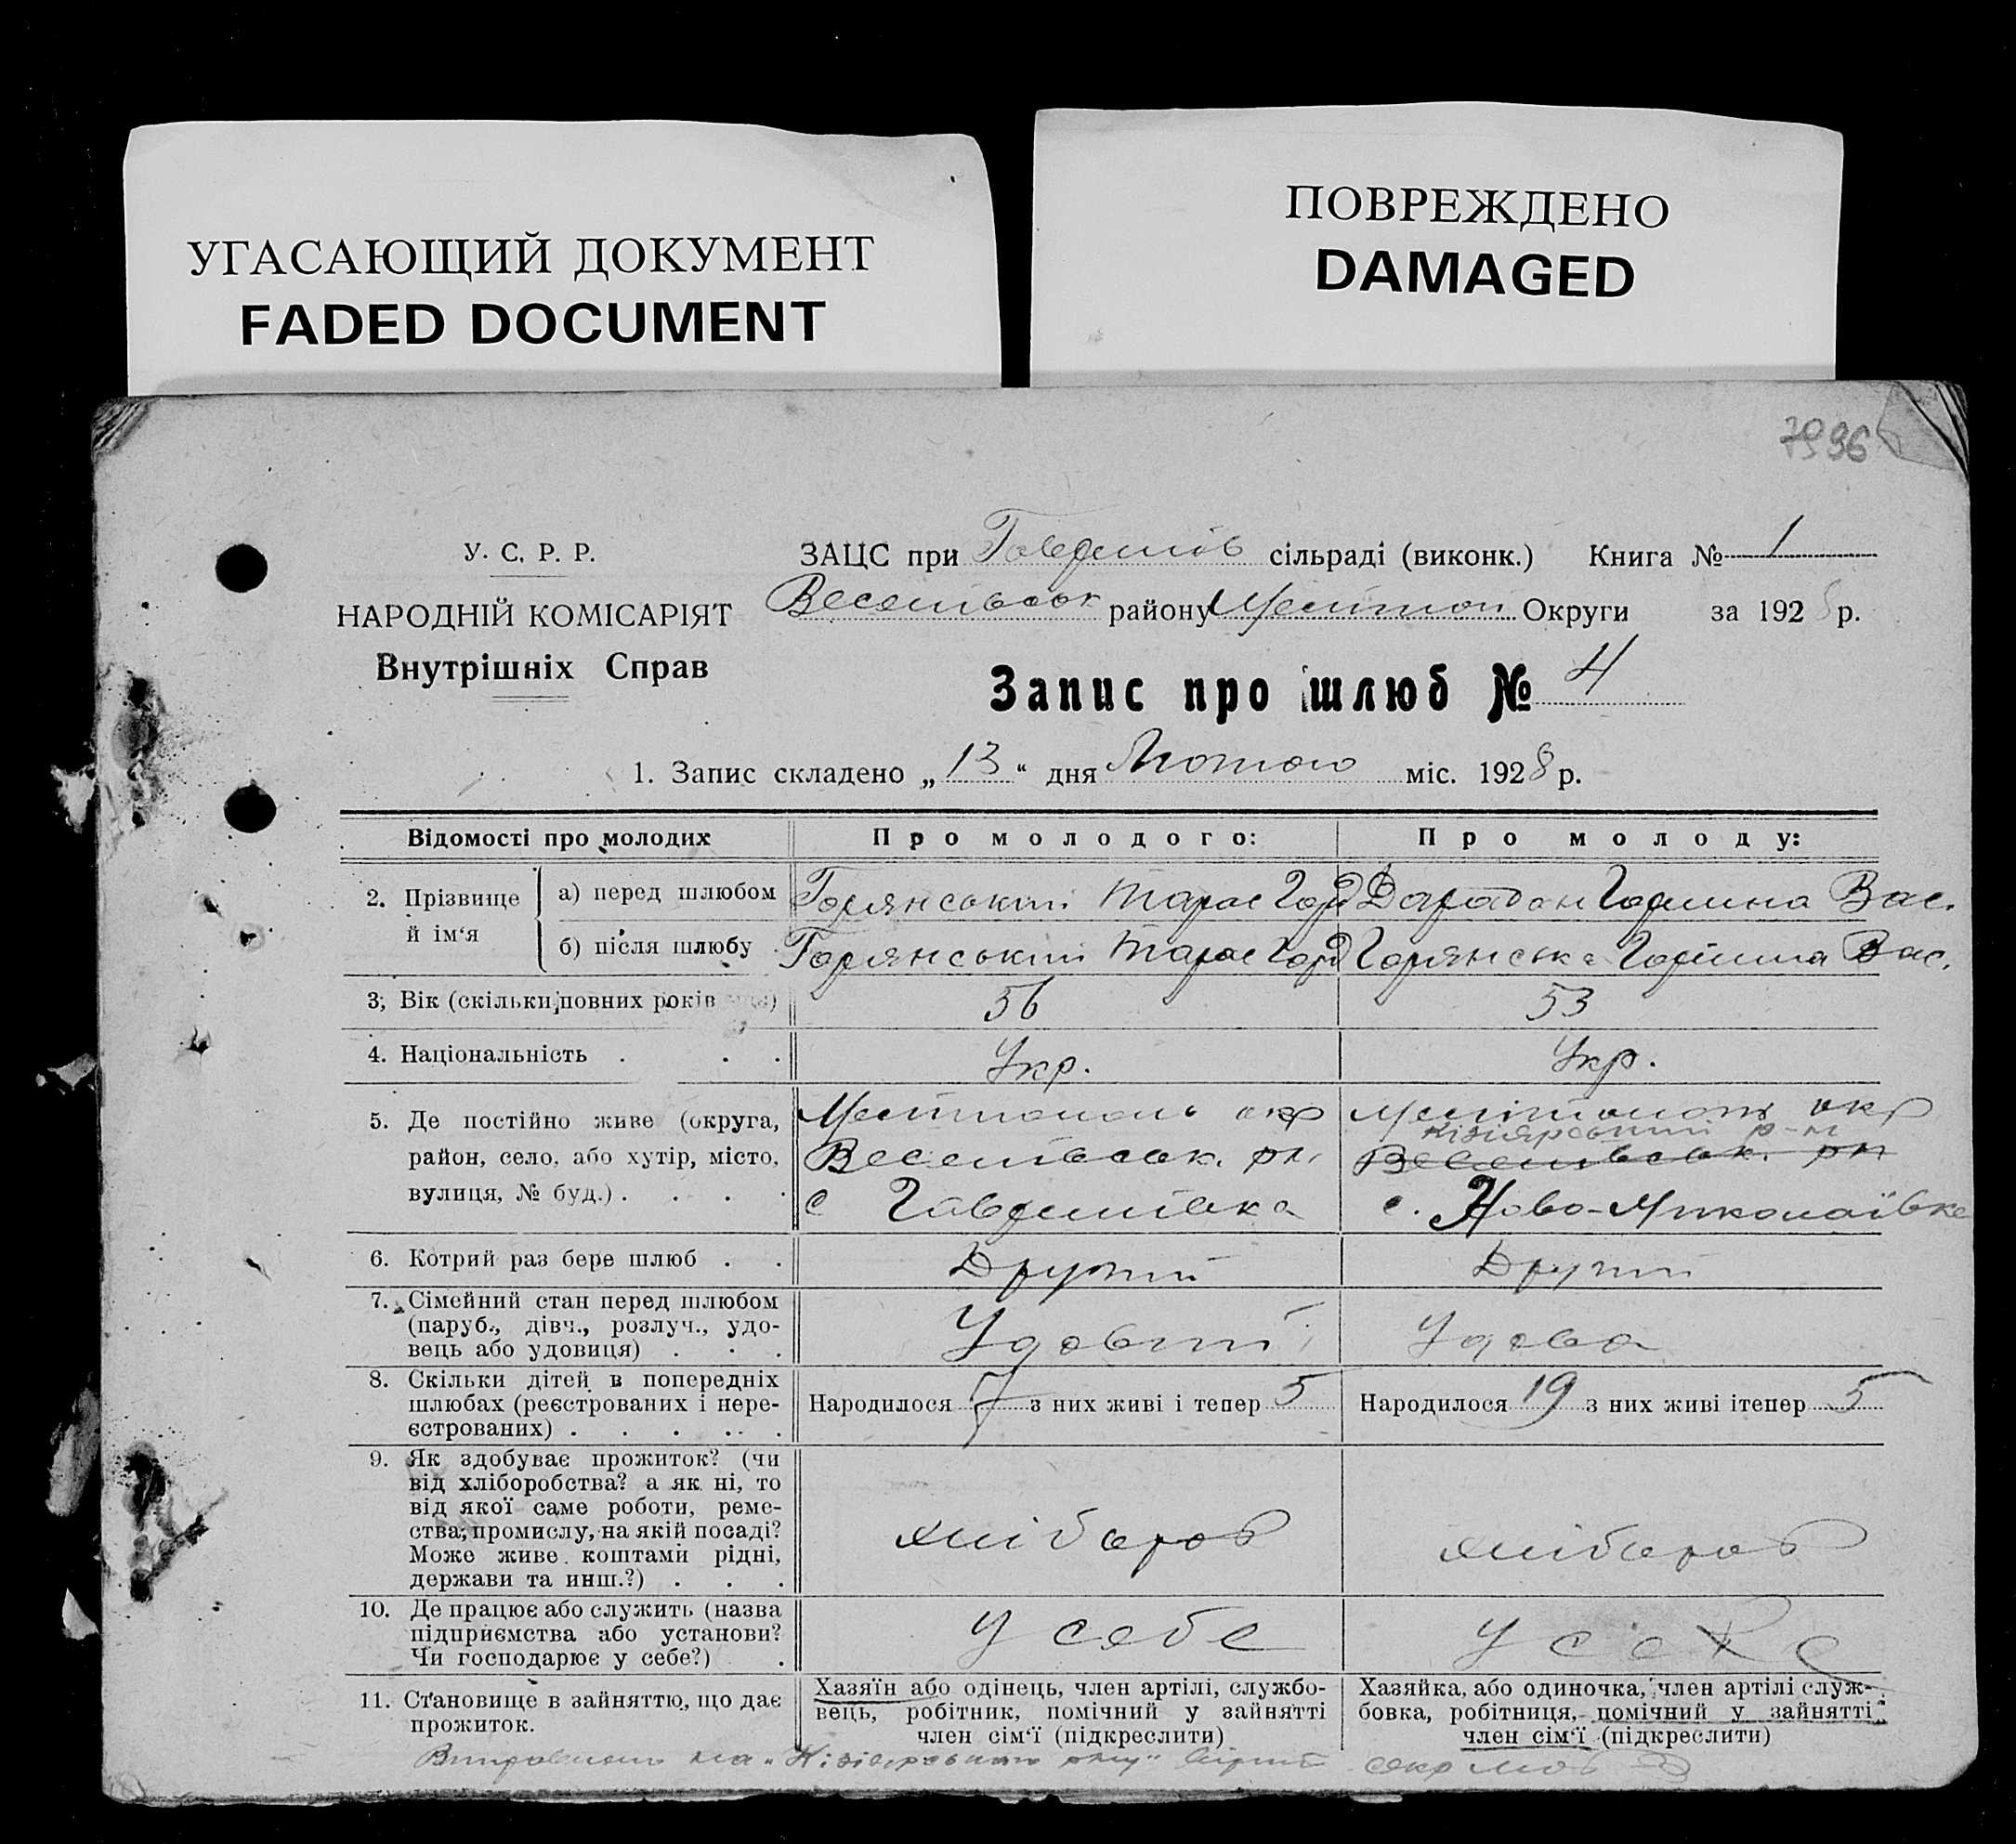 УГАСАЮЩИЙ ДОКУМЕНТ
FADED DOCUMENT
ПОВРЕЖДЕНО
DAMAGED
У. С. Р. Р.
НАРОДНІЙ КОМІСАРІЯТ
Внутрішніх Справ
ЗАЦС при Гаврилів сільраді (виконк.) Книга № 1
Веселівськ району Мелітоп Округи за 1928 р.
Запис про шлюб № 4
1. Запис складено „13“ дня Лютого міс. 1928 р.
Відомості про молодих Про молодого: Про молоду:
2. Прізвище й ім‘я
а) перед шлюбом Горянський Тарас Гор Гарина Вас.
б) після шлюбу Горянський Тарас Гор Горянська Гарина Вас.
3, Вік (скільки повних років 56 53
4. Національність . . . Укр. Укр.
5. Де постійно живе (округа, район, село, або хутір, місто, вулиця, № буд.) . . . .
Мелітополь окр
Веселівськ. рн.
с Гаврилівка
Мелітополь окр
Кізіярський р-н
Веселівськ. рн
с. Ново-Миколаївка
6. Котрий раз бере шлюб . . Другий Другий
7. Сімейний стан перед шлюбом
(паруб., дівч., розлуч., удо-
вець або удовиця) . . .
Удовий Удова
8. Скільки дітей в попередніх
шлюбах (реєстрованих і нере-
єстрованих) . . . . .
Народилося 7 з них живі і тепер 5
Народилося 19 з них живі ітепер 5
9. Як здобуває прожиток? (чи
від хліборобства? а як ні, то
від якої саме роботи, реме-
ства, промислу, на якій посаді?
Може живе коштами рідні,
держави та инш.?) . . .
хлібороб хлібороб
10. Де працює або служить (назва
підприємства або установи?
Чи господарює у себе?) .
У себе У себе
11. Становище в зайняттю, що дає
прожиток.
Хазяїн або одінець, член артілі, службо-
вець, робітник, помічний у зайнятті
член сім‘ї (підкреслити)
Хазяйка, або одиночка, член артілі служ-
бовка, робітниця, помічний у зайнятті
член сім‘ї (підкреслити)
на „Кізіярського рну“